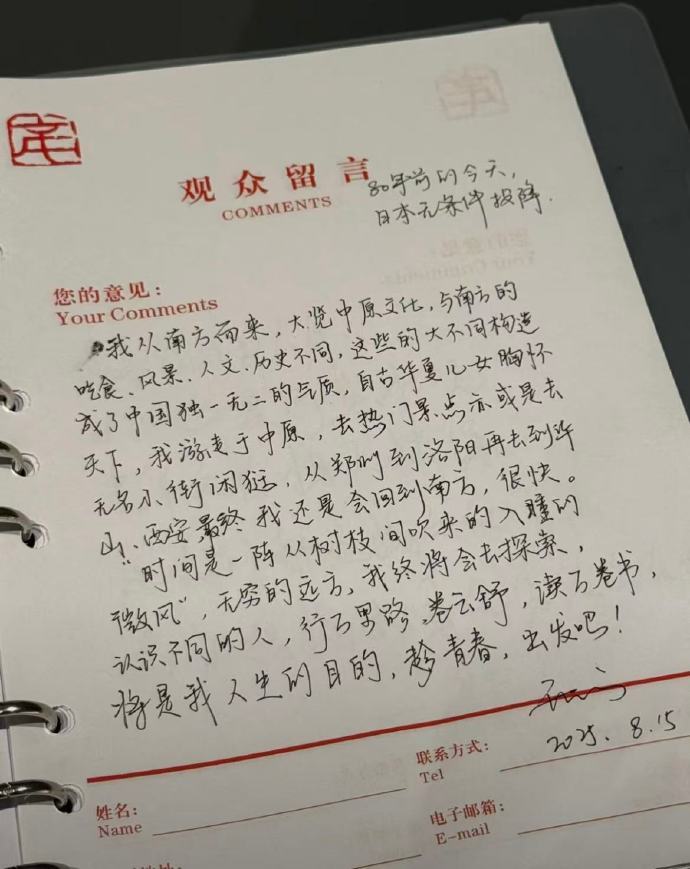 观众留言
COMMENTS
80年前的今天，
日本无条件投降.
您的意见：
Your Comments
我从南方而来，大览中原文化，与南方的
吃食、风景、人文、历史不同，这些的大不同构造
成了中国独一无二的气质，自古华夏儿女胸怀
天下，我游走于中原，去热门景点亦或是去
无名小街闲逛，从郑州到洛阳再去到华
山、西安，最终我还是会回到南方，很快。
“时间是一阵从树枝间吹来的入瞳的
微风”，无穷的远方，我终将会去探索，
认识不同的人，行万里路，卷云舒，读万卷书，
将是我人生的目的，趁青春，出发吧！
2025. 8.15
联系方式：
Tel
姓名：
Name
电子邮箱：
E-mail